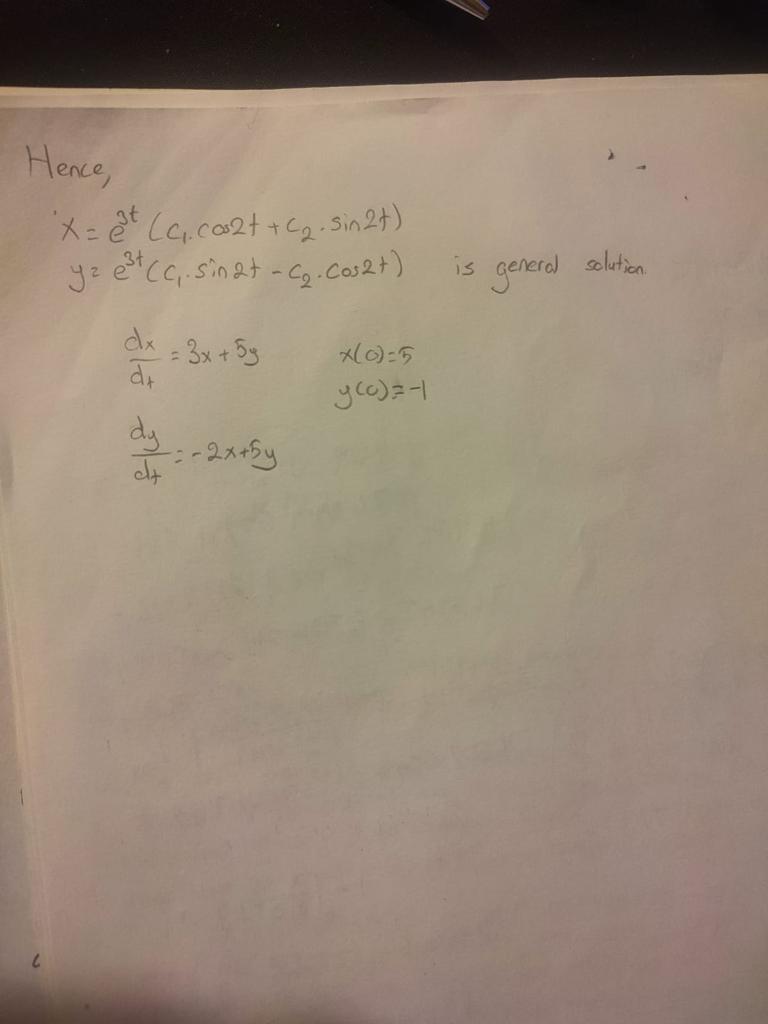 Hence,
x = e^3t (c₁.cos2t + c₂.sin2t)
y = e^3t (c₁.sin2t - c₂.cos2t) is general solution.
dx/dt = 3x + 5y x(0)=5
y(0)=-1
dy/dt = -2x+5y